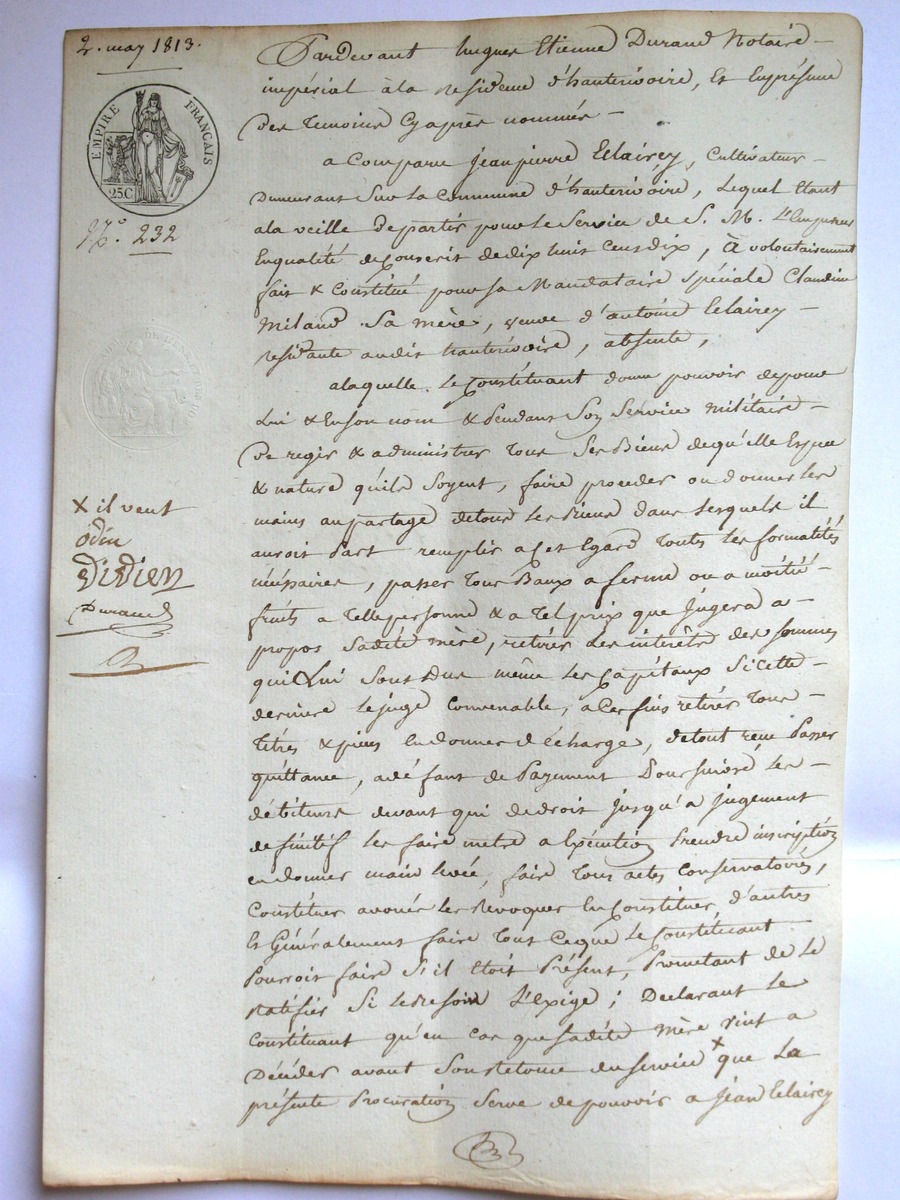 2. may 1813.
EMPIRE FRANÇAIS
25C
N.º 232
Pardevant hugues Etienne Durand Notaire
impérial à la residence d'hauterivoire, Et Enprésence
Des temoins Cyaprès nommés
a Comparu jeanpierre Eclairey, Cultivateur
Demeurant Sur La Commune d'hauterivoire, lequel Etant
ala veille departir pour le Service de S. M. l'Empereur
Enqualité deconscrit dedix huit Cent dix, à volontairement
fait & Constitué pour sa Mandataire spéciale Claudine
Miland Sa mère, veuve d'antoine Eclairey
residante audit hauterivoire, absente,
alaquelle le Constituant donne pouvoir depour
Lui & Enson nom & Pendant Son Service militaire
De regir & administrer tous Ses Biens dequ'elle Espece
& nature qu'ils Soyent, faire proceder ou donner les
mains aupartage detous les Biens dans lesquels il
auroit Part remplir acet Egard toutes les formalités
nécéssaires, passer tous Baux a ferme ou a moitié
fruits a tellepersonne & a tel prix que jugera a
propos Sadite mère, retirer Les interêts des sommes
qui Lui Sont Dus même les Capitaux Si cette
derniere le juge Convenable, a Ces fins retirer tous
titres & pièces Endonner décharge, detout reçu Passer
quittance, adéfaut de Payement Poursuivre les
débiteurs devant qui dedroit jusqu'a jugement
definitif les faire metre a Exécution Prendre inscription
endonner main levée, faire tous actes Conservatoires,
Constituer avoués les Revoquer En Constituer d'autres
Et Généralement faire tous Ceque le Constituant
Pourroit faire Si il Etoit Présent, Prometant de le
Ratifier Si leBesoin l'Exige ; Declarant le
Constituant qu'en cas que Sadite mère vint a
Décéder avant Son retour du service x que La
présente Procuration Serve de pouvoir a jean Eclairey
x il veut
Didier
Durand